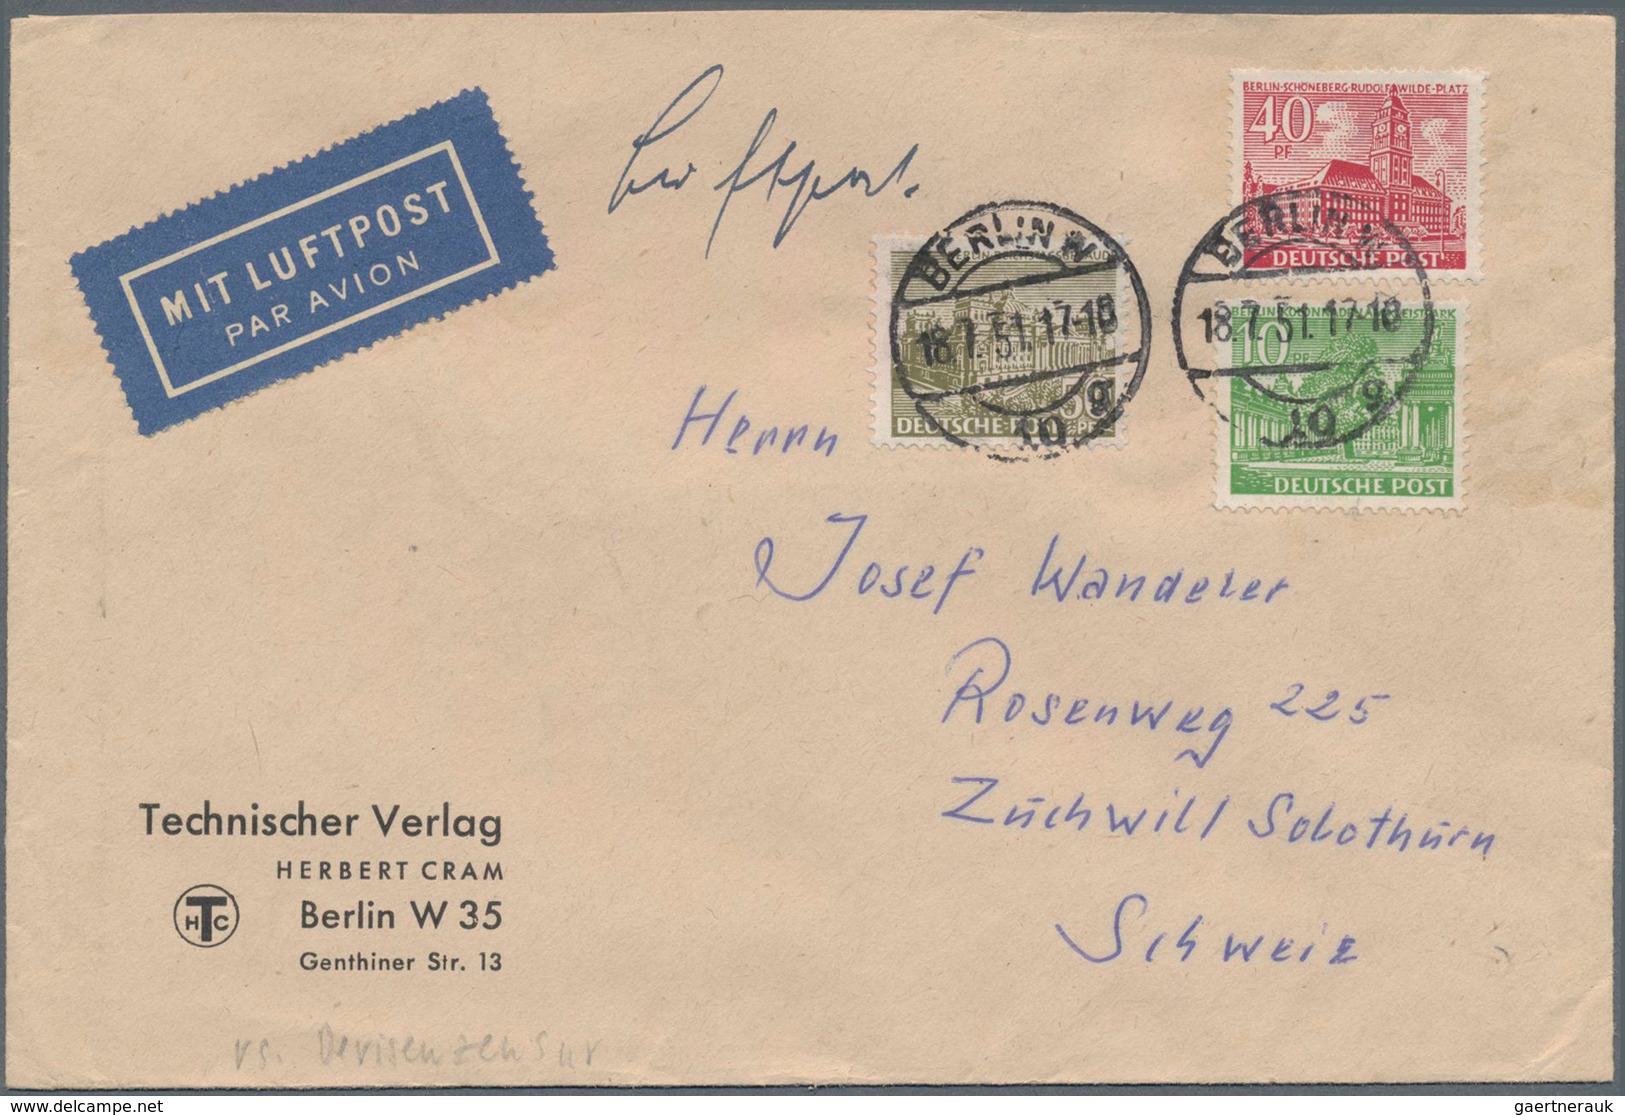 MIT LUFTPOST
PAR AVION
Luftpost.
BERLIN-SCHÖNEBERG·RUDOLF WILDE-PLATZ
40
PF
DEUTSCHE POST
BERLIN W
18.7.51.17-18
g
10
BERLIN W
18.7.51.17-18
g
10
DEUTSCHE POST
PF
10
PF
DEUTSCHE POST
Herrn
Josef Wanderer
Rosenweg 225
Zuchwill Solothurn
Schweiz
Technischer Verlag
HERBERT CRAM
HTC
Berlin W 35
Genthiner Str. 13
rs. Devisenzensur
delcampe.net
gaertnerauk